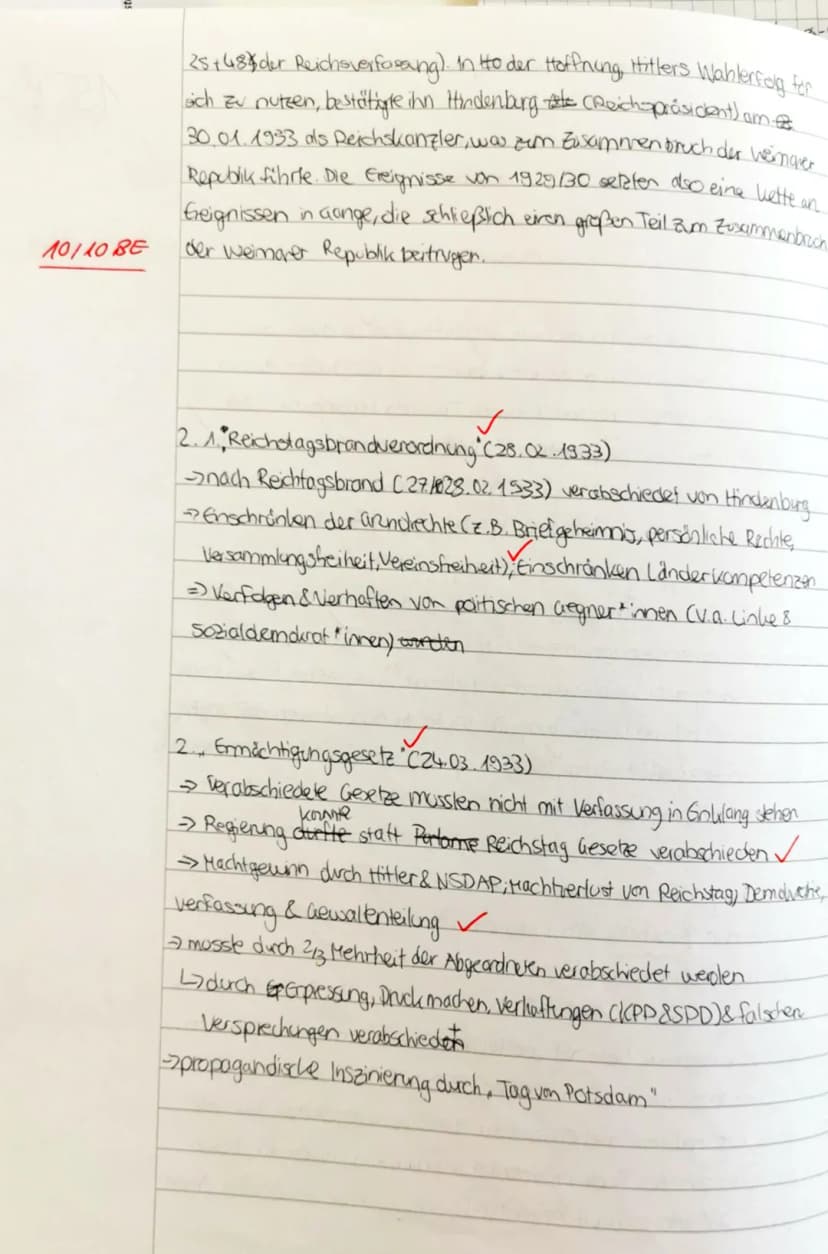 25+48) der Reichsverfassung). In Ho der Hoffnung, Hitlers Wahlerfolg für
sich zu nutzen, bestätigte ihn Hindenburg (Reichspräsident) am
30.01.1933 als Reichskanzler, was zum Zusammenbruch der Weimarer
Republik führte. Die Ereignisse von 1929/30 setzten also eine Kette an
Ereignissen in Gange, die schließlich einen großen Teil zum Zusammenbruch
10/10 BE
der Weimarer Republik beitrugen.
2. 1. "Reichstagsbrandverordnung" (28.02.1933)
→ nach Reichtagsbrand (27/028.02.1933) verabschiedet von Hindenburg
→ Einschränken der Grundrechte (z.B. Briefgeheimnis, persönliche Rechte,
Versammlungsfreiheit, Vereinsfreiheit); Einschränken Länderkompetenzen
⇒ Verfolgen & Verhaften von politischen Gegner*innen (v.a. Linke &
Sozialdemokrat*innen) worden
2. „Ermächtigungsgesetz" (24.03.1933)
→ Verabschiedete Gesetze mussten nicht mit Verfassung in Einklang stehen
konnte
→ Regierung durfte statt Parlame Reichstag Gesetze verabschieden
→ Machtgewinn durch Hitler & NSDAP; Machtverlust von Reichstag, Demokratie,
verfassung & Gewaltenteilung
→ musste durch 2/3 Mehrheit der Abgeordneten verabschiedet werden
↳ durch Erpressung, Druck machen, Verhaftungen (KPD & SPD) & falschen
Versprechungen verabschiedet
→ propagandische Inszinierung durch „Tag von Potsdam"